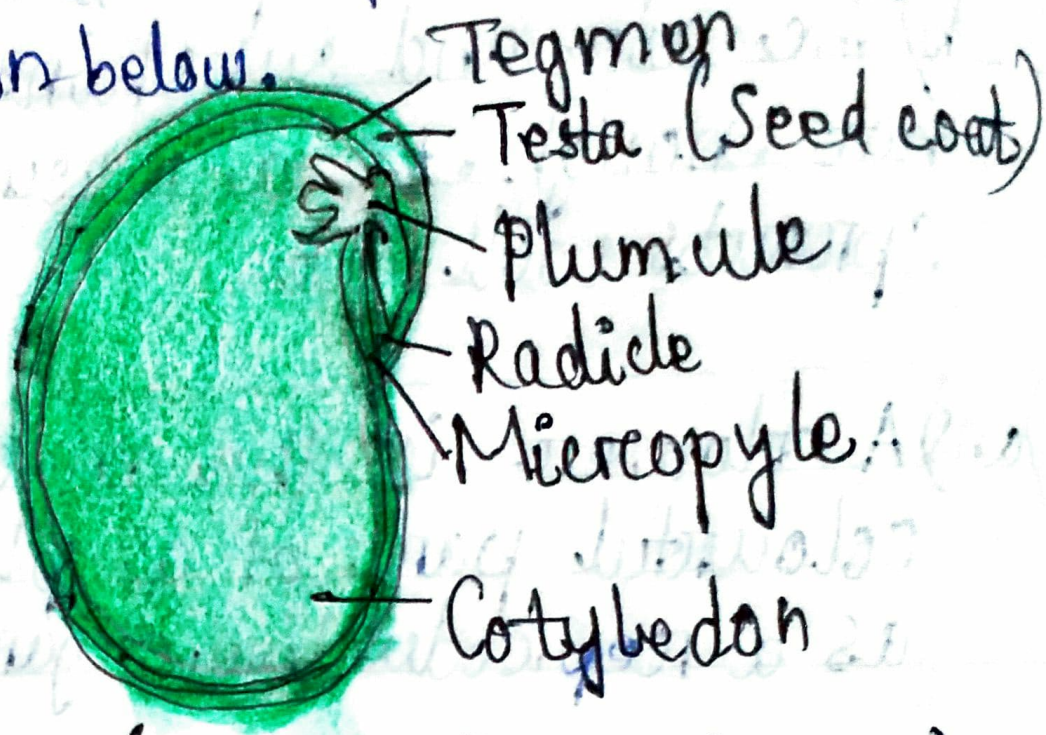 n below.
Tegmen
Testa (Seed coat)
Plumule
Radicle
Micropyle
Cotyledon